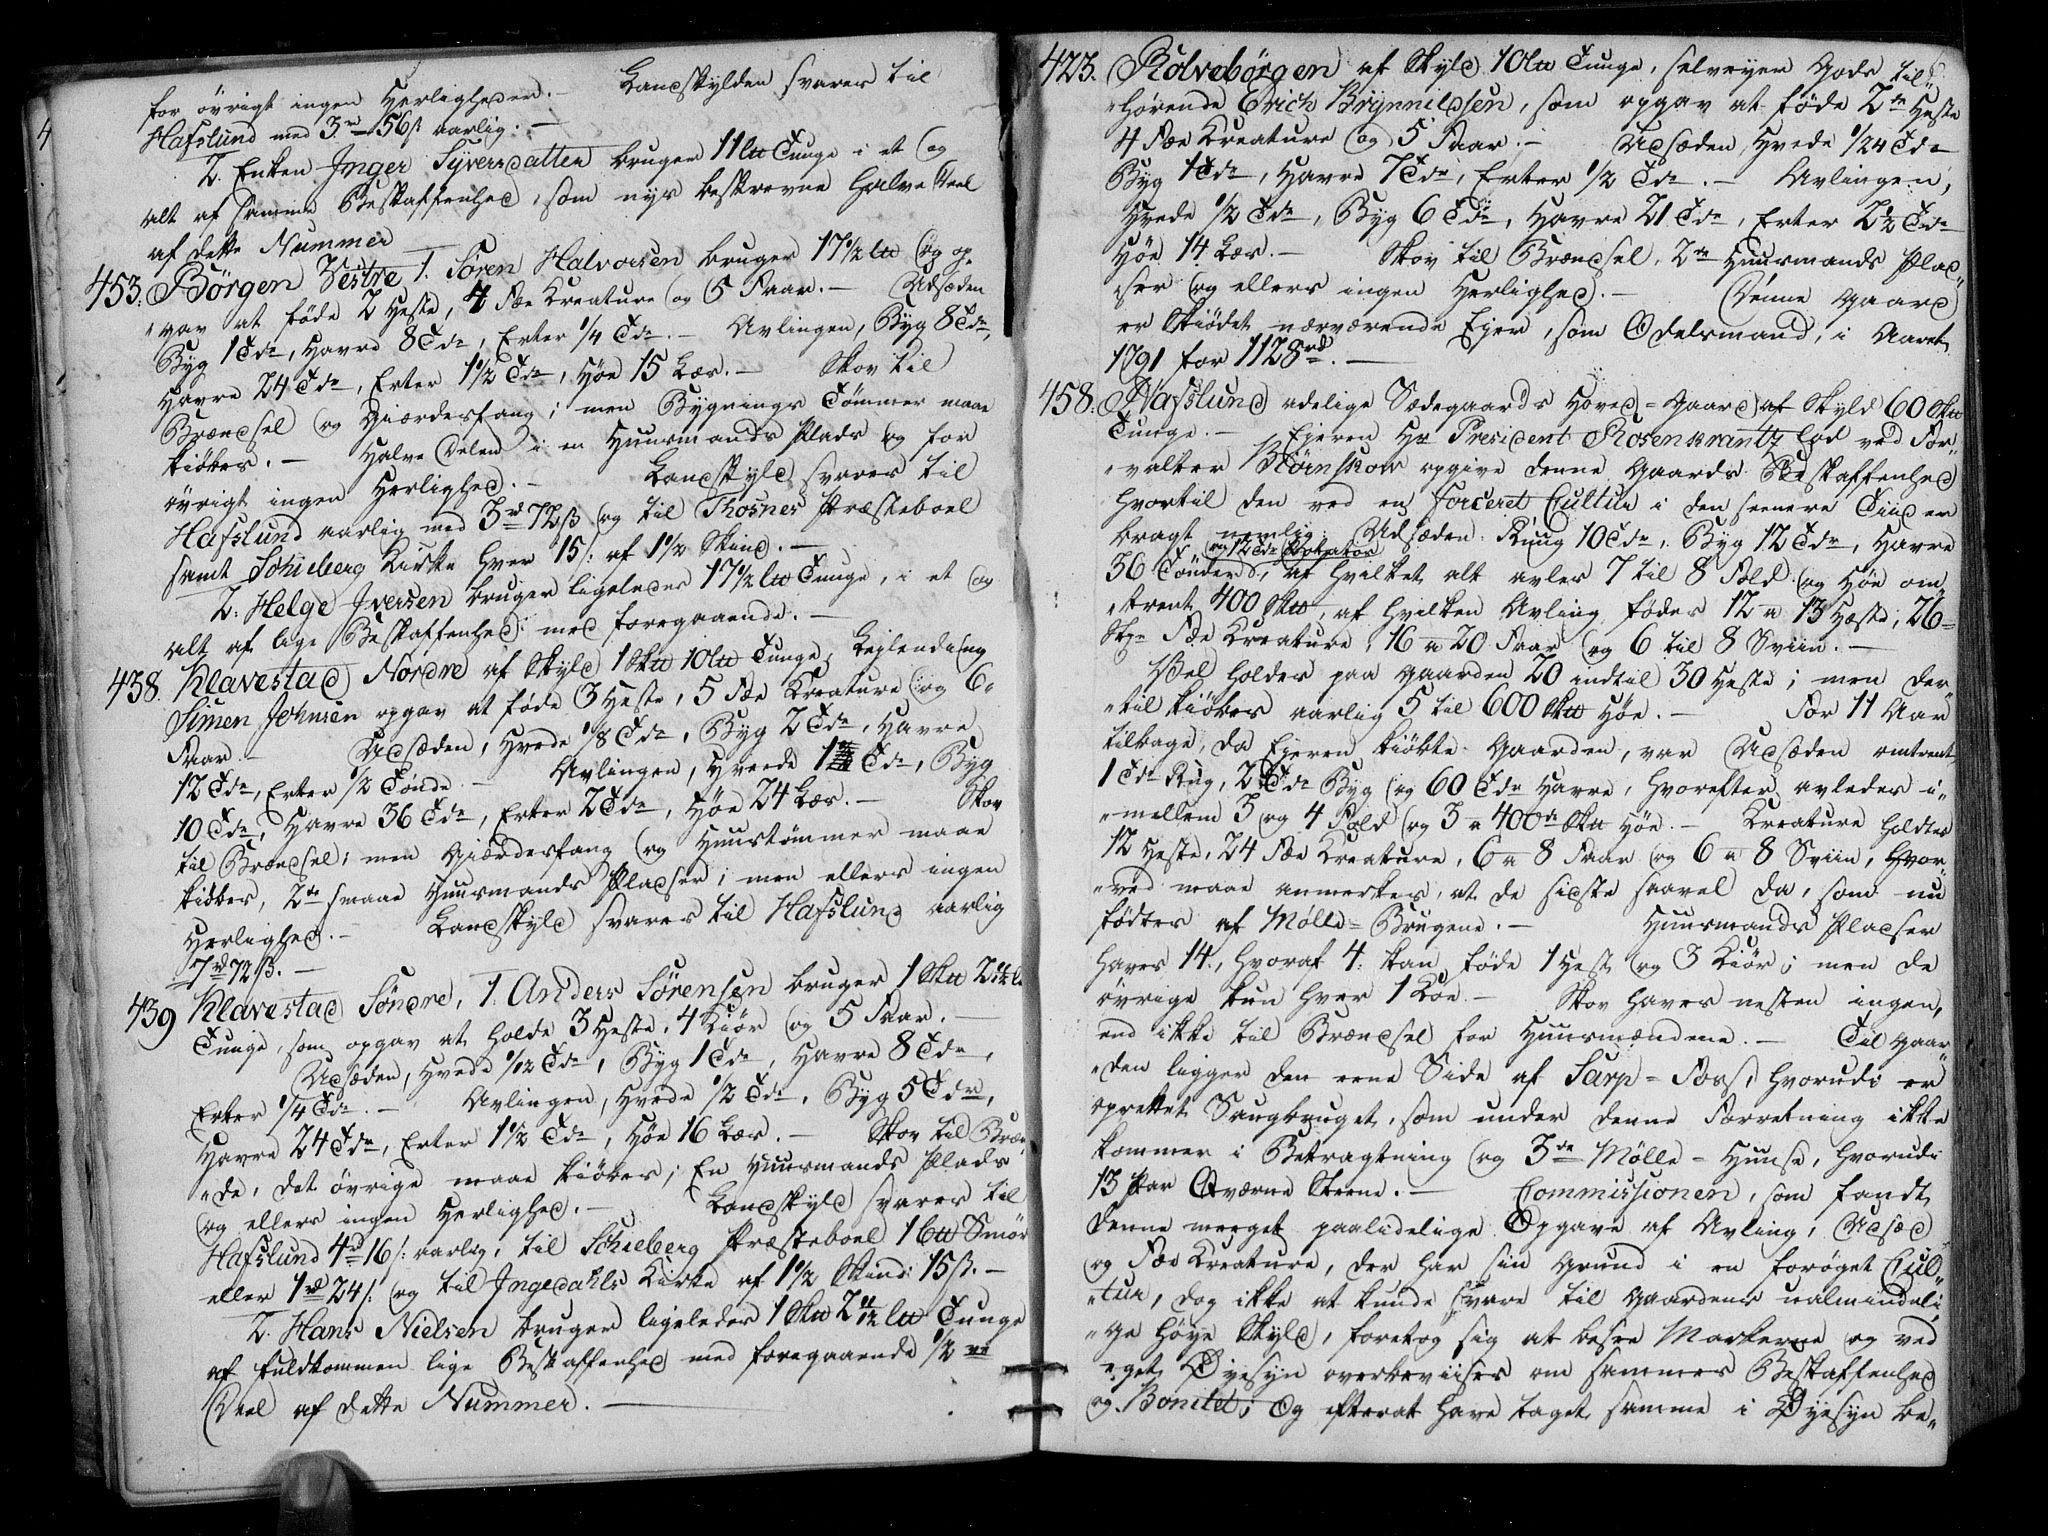 for övrigt ingen Herligheder. — Landskylden svares til
Hafslund med 3rd 56s aarlig. —
2. Enken Inger Syversdatter bruger 11 lb Tunge i et og
alt af samme Beskaffenhed, som nys beskrevne halve Deel
af dette Nummer
453. Börgen Vestre 1. Sören Halvorsen bruger 17½ lb og op-
„gav at föde 2 Heste, 4 Fæe Kreature og 5 Faar. — Udsæden
Byg 1 Tde, Havre 8 Tdr, Erter ¼ Tde. — Avlingen, Byg 8 Tdr,
Havre 24 Tdr, Erter 1½ Tde, Höe 15 Læs. — Skov til
Brændsel og Giærdesfang; men Bygnings Tömmer maae
kiöbes. — Halve Delen i en Huusmands Plads og for
övrigt ingen Herlighed. — Landskyld svares til
Hafslund aarlig med 3rd 72s og til Thosnes Præsteboel
samt Schieberg Kirke hver 15s. af 1½ Skind. —
2. Helge Iversen bruger ligeledes 17½ lb Tunge, i et og
alt af lige Beskaffenhed med foregaaende. —
438. Klavestad Nordre af Skyld 1 Skp 10 lb Tunge, Leilending
Simen Johnsen opgav at föde 3 Heste, 5 Fæe Kreature og 6
Faar — Udsæden, Hvede ⅛ Tde, Byg 2 Tdr, Havre
12 Tdr, Erter ½ Tönde — Avlingen, Hvede 1 Tde, Byg
10 Tdr, Havre 36 Tdr, Erter 2 Tdr, Höe 24 Læs. — Skov
til Brændsel; men Giærdesfang og Huustömmer maae
kiöbes, 2de smaae Huusmands Pladser; men ellers ingen
Herlighed. — Landskyld svares til Hafslund aarlig
7rd 72s. —
439 Klavestad Söndre, 1. Anders Sörensen bruger 1 Skp 2½ lb
Tunge, som opgav at holde 3 Heste, 4 Kiör og 5 Faar. —
Udsæden, Hvede 1/12 Tde, Byg 1 Tde, Havre 8 Tdr,
Erter ¼ Tde. — Avlingen, Hvede ½ Tde, Byg 5 Tdr,
Havre 24 Tdr, Erter 1½ Tde, Höe 16 Læs. — Skov til Bræn
„de, det övrige maae kiöbes; En Huusmands Plads
og ellers ingen Herlighed. — Landskyld svares til
Hafslund 4rd 16s: aarlig, til Schieberg Præsteboel 1 b Smör
eller 1rd 24s: og til Ingedahls Kirke af 1½ Skind: 15s. —
2. Hans Nielsen bruger ligeledes 1 Skp 2½ lb Tunge
af fuldkommen lige Beskaffenhed med foregaaende ½ve
Deel af dette Nummer. —
423. Rolvsbörgen af Skyld 10 lb Tunge, selveyer Gods til
„hörende Erich Brynnildsen, som opgav at föde 2de Heste
4 Fæe Kreature og 5 Faar. — Udsæden, Hvede 1/24 Tde
Byg 1 Tde, Havre 7 Tdr, Erter ½ Tde. — Avlingen,
Hvede ½ Tde, Byg 6 Tdr, Havre 21 Tdr, Erter 2½ Tde
Höe 14 Læs. — Skov til Brændsel, 2de Huusmands Plad
„ser og ellers ingen Herlighed. — Denne Gaard
er skiödet nærværende Ejer, som Odelsmand, i Aaret
1791 for 1128rd. —
458. Hafslund adelige Sædegaards Hoved-Gaard af Skyld 60 Skp
Tunge. — Ejeren Hr President Rosenkrantz lod ved For-
„valter Biörnskow opgive denne Gaards Beskaffenhed
hvortil den ved en forceret Cultur i den seenere Tiid er
bragt nemlig: Udsæden: Ruug 10 Tdr, Byg 12 Tdr, Havre
og 12 Tdr Potatos
36 Tönder, af hvilket alt avles 7 til 8 Fold og Höe om
„trent 400 Skp, af hvilken Avling födes 12 a 13 Hæste, 26
Stkr Fæe Kreature, 16 a 20 Faar og 6 til 8 Sviin. —
Vel holdes paa Gaarden 20 indtil 30 Heste; men der
„til kiöbes aarlig 5 til 600 Skp Höe. — For 11 Aar
tilbage, da Ejeren kiöbte Gaarden, var Udsæden omtrent
1 Tde Rug, 2 Tdr Byg og 60 Tdr Havre, hvorefter avledes i-
„mellem 3 og 4 Fold og 3 a 400de Skp Höe. — Kreature holdtes
12 Heste, 24 Fæe Kreature, 6 a 8 Faar og 6 a 8 Sviin, hvor
„ved maae anmerkes, at de sidste saavel da, som nu
födtes af Mölle-Brugene. — Huusmands Pladser
haves 14, hvoraf 4. kan föde 1 Hest og 3 Kiör; men de
övrige kun hver 1 Koe. — Skov haves nesten ingen,
end ikke til Brændsel for Huusmændene. — Til Gaar
„den ligger den eene Side af Sarp-Foss, hvorudi er
oprettet Saugbruget, som under denne Forretning ikke
kommer i Betragtning og 3de Mölle-Huuse, hvorudi
13 Par Qværne Steene. — Commissionen, som fandt
denne meeget paalidelige Opgave af Avling, Udsæd
og Fæe Kreature, der har sin Grund i en foröget Cul
„tur, dog ikke at kunde svare til Gaardens ualmindeli
„ge höye Skyld, foretog sig at besee Markerne og ved
eget Öyesyn overbeviises om sammes Beskaffenhed
og Bonitet; Og efterat have taget samme i Öyesyn be-